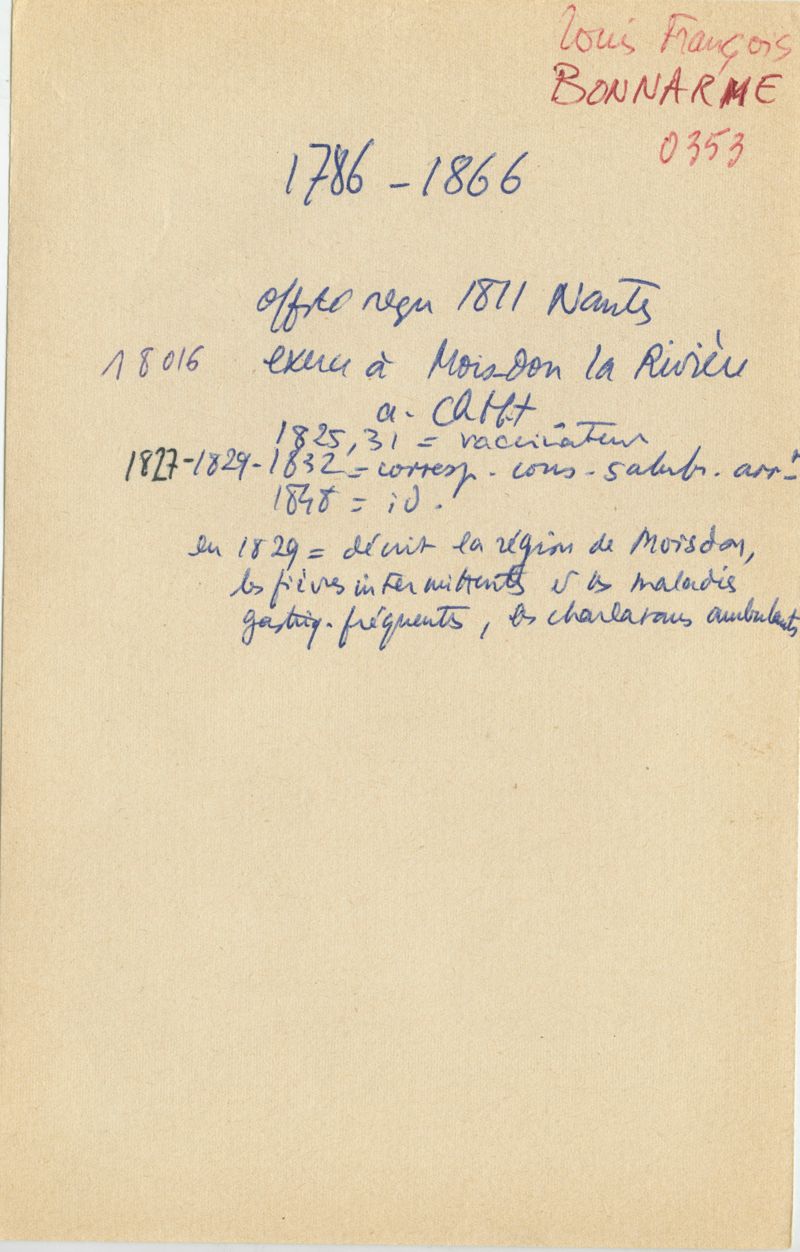 Louis François
BONNARME
0353
1786 - 1866
reçu 1811 Nantes
18016 exerce à Moisdon la Rivière
a. Chât
1825, 31 = vaccinateur
1827-1829-1832 = corresp. cons. salubr. arr-t
1848 = id.
en 1829 = décrit la région de Moisdon,
les fièvres intermittents et les maladies
gastriq. fréquentes, les charlatans ambulants